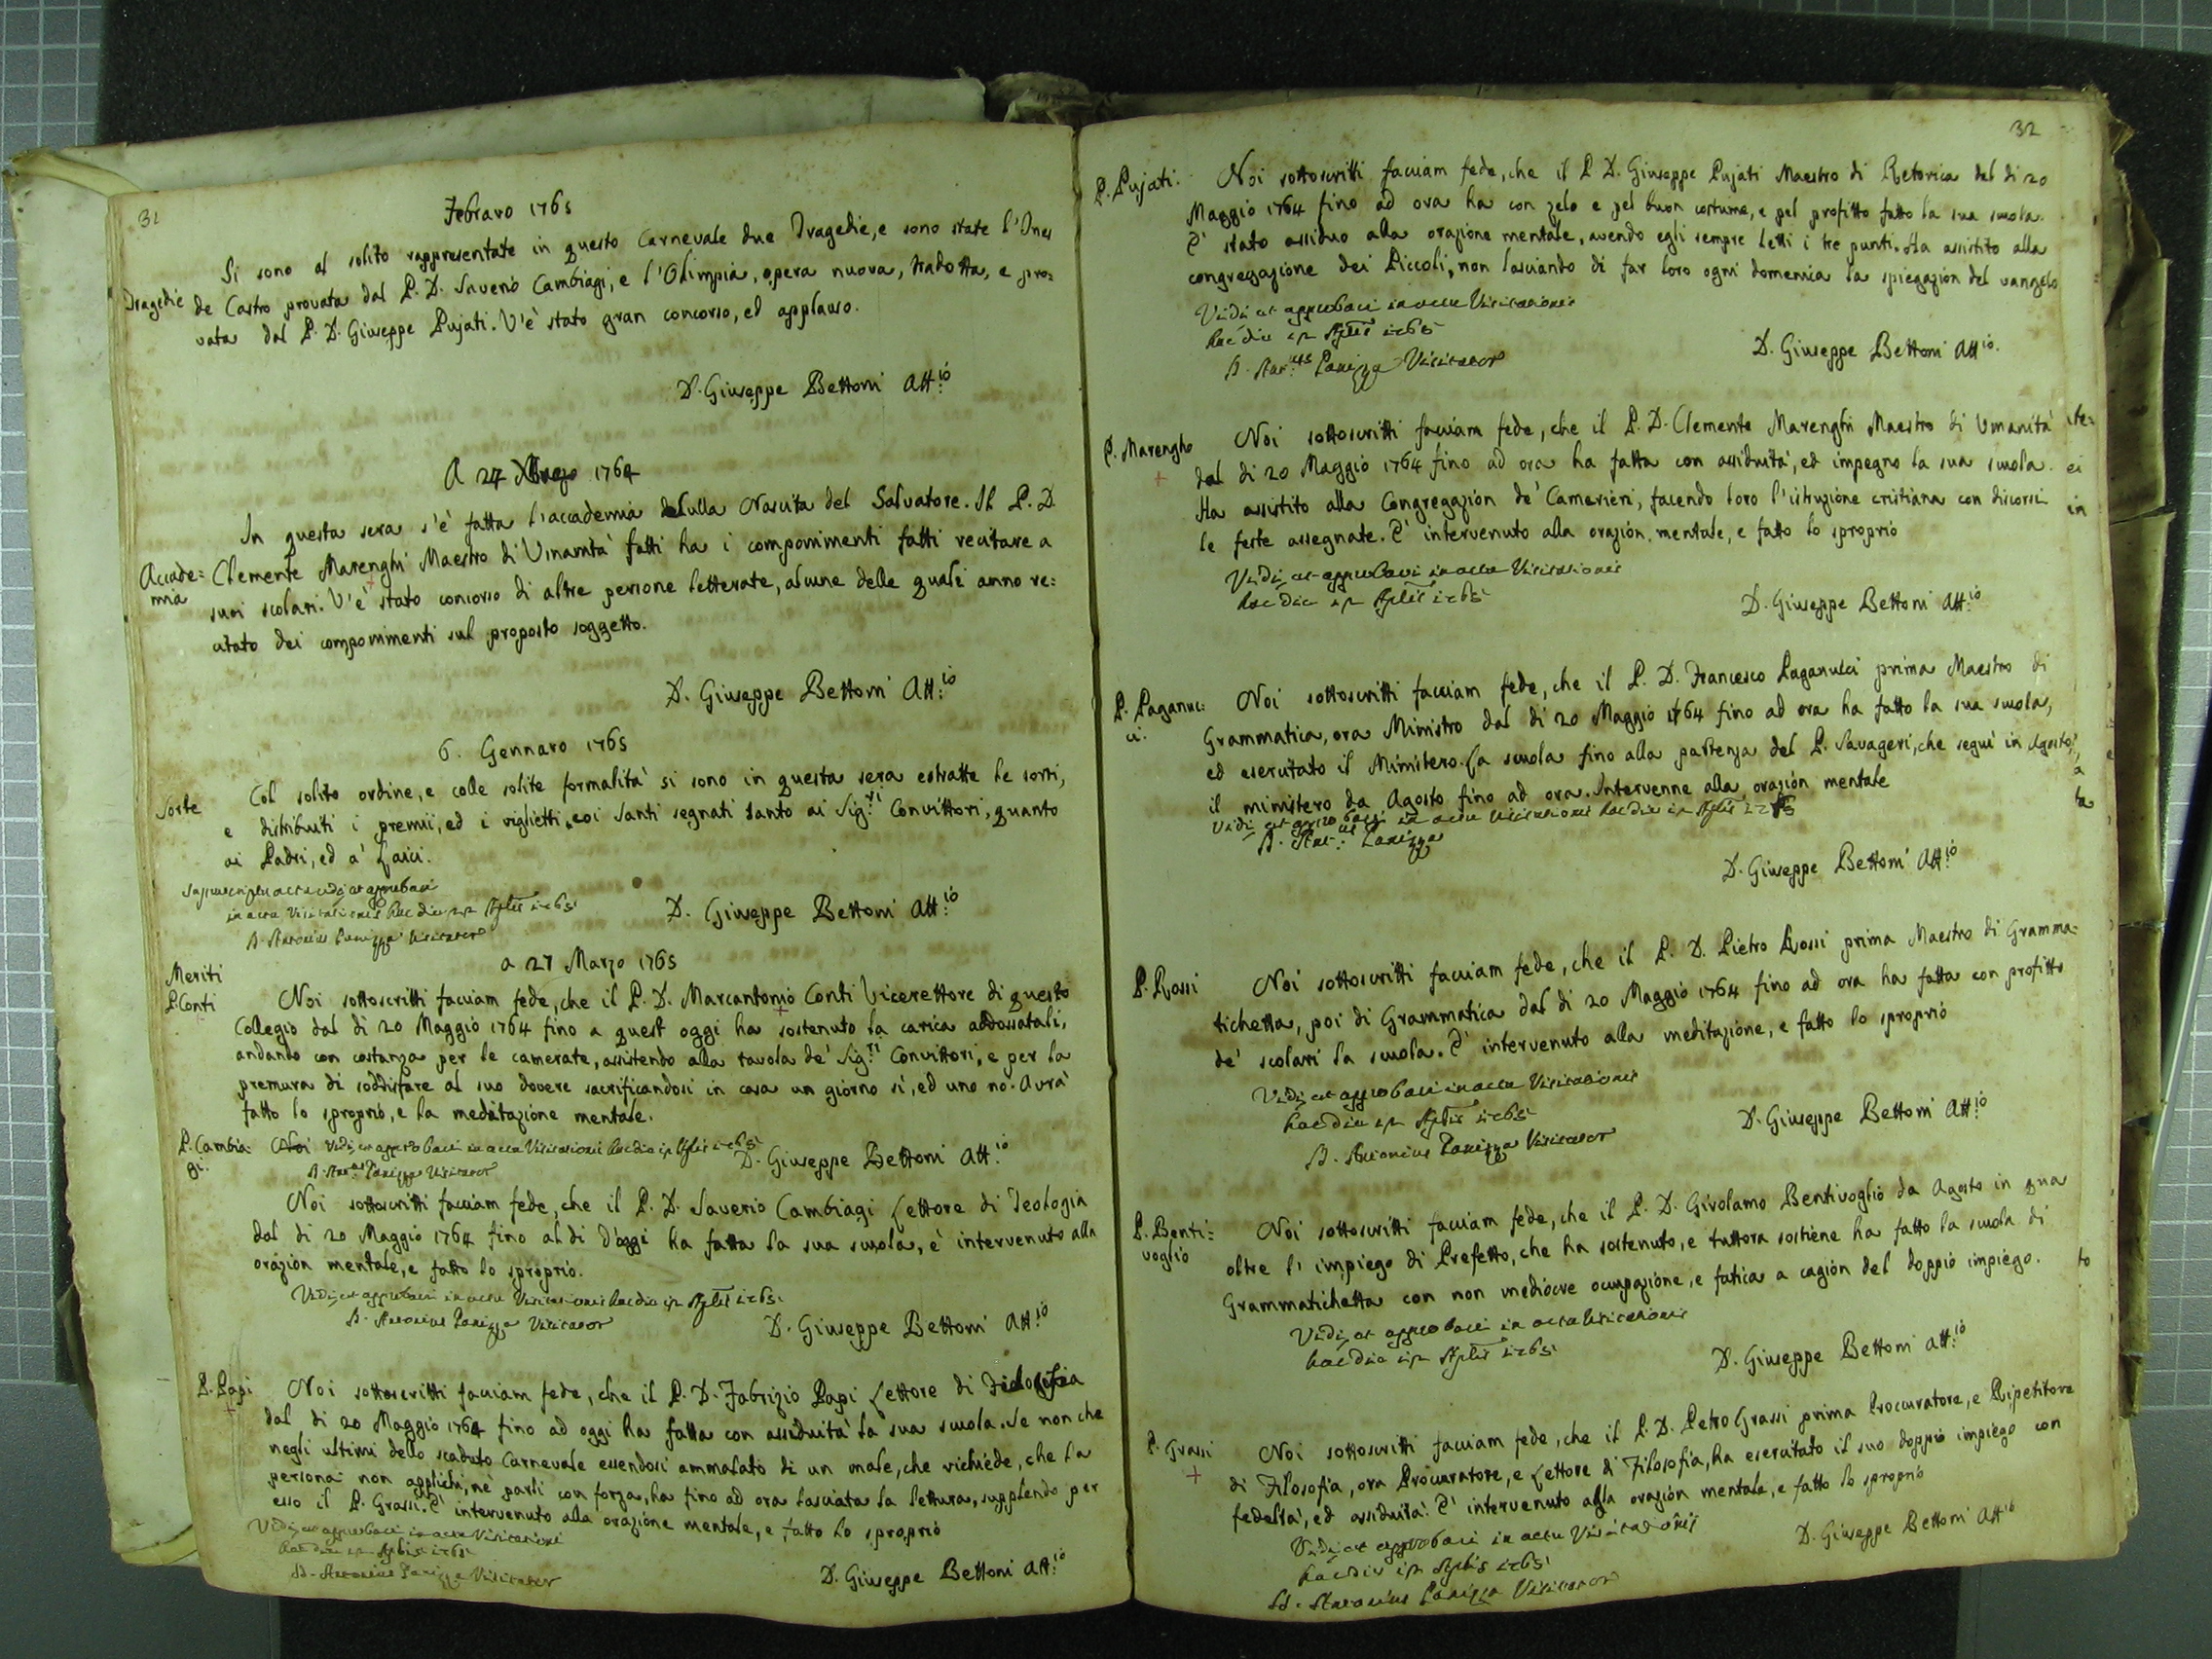 31
Febraro 1765
Si sono al solito rappresentate in questo Carnevale due Tragedie, e sono state l'Ines
Tragedie
de Castro provata dal P. D. Saverio Cambiagi, e l'Olimpia, opera nuova, tradotta, e pro=
vata dal P. D. Giuseppe Pujati. V'è stato gran concorso, ed applauso.
D. Giuseppe Bettoni Att:io
A 27 1764
In questa sera s'è fatta l'accademia sulla Nascita del Salvatore. Il P. D.
Accade=
mia
Clemente Marenghi Maestro di Umanità fatti ha i componimenti fatti recitare a
suoi scolari. V'è stato concorso di altre persone letterate, alcune delle quali anno re=
citato dei componimenti sul proposto soggetto.
D. Giuseppe Bettoni Att:io
6. Gennaro 1765
Sorte
Col solito ordine, e colle solite formalità si sono in questa sera estratte le sorti,
e distribuiti i premii, ed i viglietti coi Santi segnati tanto ai Sig.ri Convittori, quanto
ai Padri, ed a' Laici.
Suprascripta acta vidi, et approbavi
in actu Visitationis hac die Aplis 1765
D. Antonius Panizza Visitator
D. Giuseppe Bettoni Att:io
a 27 Marzo 1765
Meriti
P. Conti
Noi sottoscritti facciam fede, che il P. D. Marcantonio Conti Vicerettore di questo
Collegio dal dì 20 Maggio 1764 fino a quest oggi ha sostenuto la carica addossatali,
andando con costanza per le camerate, assistendo alla tavola de' Sig.ri Convittori, e per la
premura di soddisfare al suo dovere sacrificandosi in casa un giorno sì, ed uno no. Avrà
fatto lo sproprio, e la meditazione mentale.
P. Cambia=
gi.
Noi Vidi, et approbavi in actu Visitationis hac die Aplis 1765
D. Ant.us Panizza Visitator
D. Giuseppe Bettoni Att:io
Noi sottoscritti facciam fede, che il P. D. Saverio Cambiagi Lettore di Teologia
dal dì 20 Maggio 1764 fino al dì d'oggi ha fatta la sua scuola, è intervenuto alla
orazion mentale, e fatto lo sproprio.
Vidi, et approbavi in actu Visitationis hac die Aplis 1765.
D. Antonius Panizza Visitator
D. Giuseppe Bettoni Att:io
P. Papi
Noi sottoscritti facciam fede, che il P. D. Fabrizio Papi Lettore di Filosofia
dal dì 20 Maggio 1764 fino ad oggi ha fatta con assiduità la sua scuola. Se non che
negli ultimi dello scaduto Carnevale essendosi ammalato di un male, che richiede, che la
persona non applichi, nè parli con forza, ha fino ad ora lasciata la lettura, supplendo per
esso il P. Grassi. È intervenuto alla orazione mentale, e fatto lo sproprio
Vidi, et approbavi in actu Visitationis
hac die Aplis 1765
D. Antonius Panizza Visitator
D. Giuseppe Bettoni Att:io
32
P. Pujati.
Noi sottoscritti facciam fede, che il P. D. Giuseppe Pujati Maestro di Retorica dal dì 20
Maggio 1764 fino ad ora ha con zelo e pel buon costume, e pel profitto fatto la sua scuola.
È stato assiduo alla orazione mentale, avendo egli sempre letti i tre punti. Ha assistito alla
congregazione dei Piccoli, non lasciando di far loro ogni domenica la spiegazion del vangelo
Vidi et approbavi in actu Visitationis
hac die Aplis 1765
D. Ant.us Panizza Visitator
D. Giuseppe Bettoni Att:io.
P. Marengho
Noi sottoscritti facciam fede, che il P. D. Clemente Marenghi Maestro di Umanità
dal dì 20 Maggio 1764 fino ad ora ha fatta con assiduità, ed impegno la sua scuola.
Ha assistito alla Congregazion de' Camerieri, facendo loro l'istruzione cristiana con discorsi
le feste assegnate. È intervenuto alla orazion mentale, e fatto lo sproprio
Vidi, et approbavi in actu Visitationis
hac die Aplis 1765
D. Giuseppe Bettoni Att:io
P. Paganuc=
ci.
Noi sottoscritti facciam fede, che il P. D. Francesco Paganucci prima Maestro di
Grammatica, ora Ministro dal dì 20 Maggio 1764 fino ad ora ha fatto la sua scuola,
ed esercitato il Ministero. La scuola fino alla partenza del P. Savageri, che seguì in Agosto,
il ministero da Agosto fino ad ora. Intervenne alla orazion mentale
Vidi, et approbavi in actu Visitationis hac die Aplis 1765
D. Ant.us Panizza
D. Giuseppe Bettoni Att:io
P. Rossi
Noi sottoscritti facciam fede, che il P. D. Pietro Rossi prima Maestro di Gramma=
tichetta, poi di Grammatica dal dì 20 Maggio 1764 fino ad ora ha fatta con profitto
de' scolari la scuola. È intervenuto alla meditazione, e fatto lo sproprio
Vidi, et approbavi in actu Visitationis
hac die Aplis 1765
D. Antonius Panizza Visitator
D. Giuseppe Bettoni Att:io
P. Benti=
voglio
Noi sottoscritti facciam fede, che il P. D. Girolamo Bentivoglio da Agosto in qua
oltre l'impiego di Prefetto, che ha sostenuto, e tuttora sostiene ha fatto la scuola di
Grammatichetta con non mediocre occupazione, e fatica a cagion del doppio impiego.
Vidi, et approbavi in actu Visitationis
hac die Aplis 1765
D. Giuseppe Bettoni Att:io
P. Grassi
Noi sottoscritti facciam fede, che il P. D. Petro Grassi prima Proccuratore, e Ripetitore
di Filosofia, ora Procuratore, e Lettore di Filosofia, ha esercitato il suo doppio impiego con
fedeltà, ed assiduità. È intervenuto alla orazion mentale, e fatto lo sproprio
Vidi, et approbavi in actu Visitationis
hac die Aplis 1765
D. Antonius Panizza Visitator
D. Giuseppe Bettoni Att:io